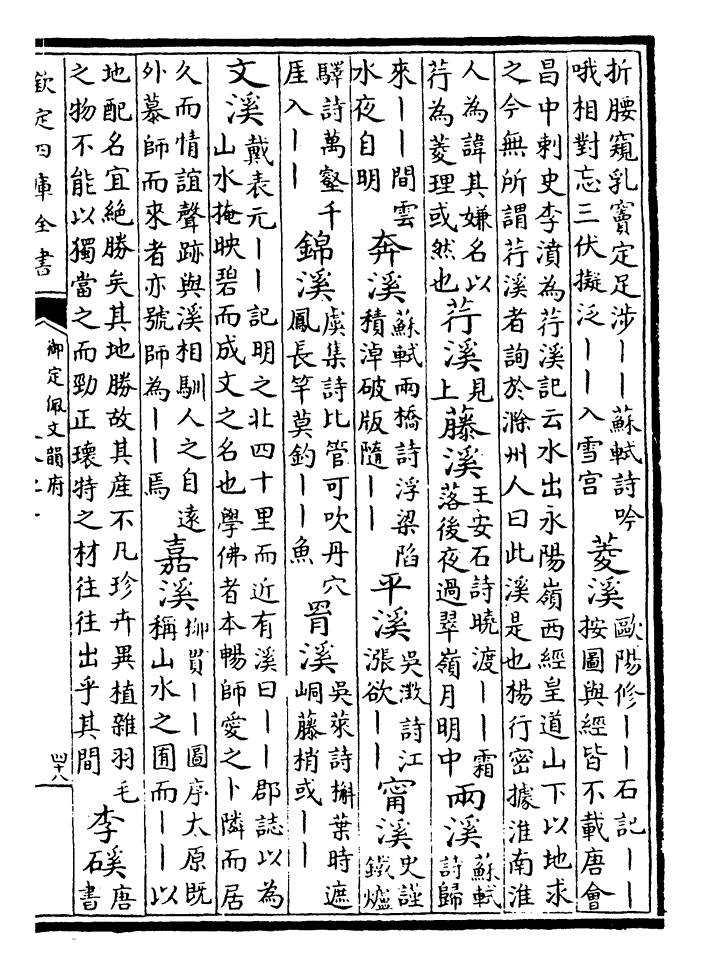 折腰窺乳竇定足涉丨丨蘇軾詩吟
哦相對忘三伏擬泛丨丨入雪宫
菱溪
歐陽修丨丨石記丨丨
按圖與經皆不載唐會
昌中刺史李濆為荇溪記云水出永陽嶺西經皇道山下以地求
之今無所謂荇溪者詢於滁州人曰此溪是也楊行密據淮南淮
人為諱其嫌名以
荇為菱理或然也
荇溪
見
上
藤溪
王安石詩曉渡丨丨霜
落後夜過翠嶺月明中
兩溪
蘇軾
詩歸
來丨丨間雲
水夜自明
奔溪
蘇軾兩橋詩浮梁陷
積淖破版隨丨丨
平溪
吳激詩江
漲欲丨丨
甯溪
史謹
鐵爐
驛詩萬壑千
厓入丨丨
錦溪
虞集詩比管可吹丹穴
鳳長竿莫釣丨丨魚
罥溪
吳萊詩槲葉時遮
峒藤梢或丨丨
文溪
戴表元丨丨記明之北四十里而近有溪曰丨丨郡誌以為
山水掩映碧而成文之名也學佛者本暢師愛之卜隣而居
久而情誼聲跡與溪相馴人之自遠
外慕師而來者亦號師為丨丨焉
嘉溪
柳貫丨丨圖序太原既
稱山水之囿而丨丨以
地配名宜絶勝矣其地勝故其産不凡珍卉異植雜羽毛
之物不能以獨當之而勁正瓌特之材往往出乎其間
李磎
唐
書
欽定四庫全書
御定佩文韻府
四十八